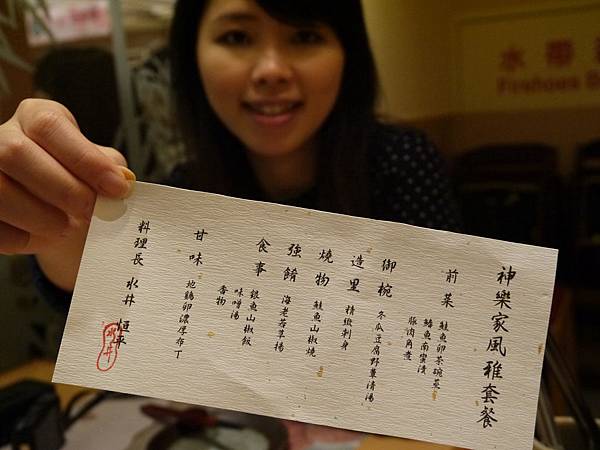 神樂家風雅套餐
前菜
鮭魚卵茶碗蒸
鰆魚南蠻漬
豚肉角煮
御椀
冬瓜豆腐野蕈清湯
造里
精緻刺身
燒物
鮭魚山椒燒
強餚
海老若草揚
食事
銀魚山椒飯
味噌湯
香物
甘味
地鶏卵濃厚布丁
料理長 水井 恒平
水井
水帶
Firehose B